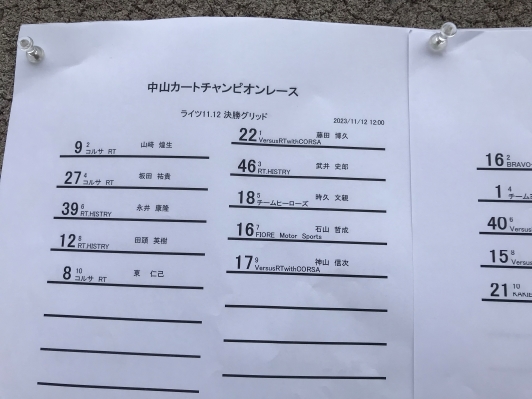 中山カートチャンピオンレース
ライツ11.12 決勝グリッド
2023/11/12 12:00
22 1 藤田 博久
VersusRTwithCORSA
9 2 山崎 煌生
コルサ RT
46 3 武井 史郎
RT.HISTRY
27 4 坂田 祐貴
コルサ RT
18 5 時久 文親
チームヒーローズ
39 6 永井 康隆
RT.HISTRY
16 7 石山 哲成
FIORE Motor Sports
12 8 田頭 英樹
RT.HISTRY
17 9 神山 信次
VersusRTwithCORSA
8 10 東 仁己
コルサ RT
16 2
BRAVO
1 4
チーム
40 6
Versus
15 8
Versus
21 10